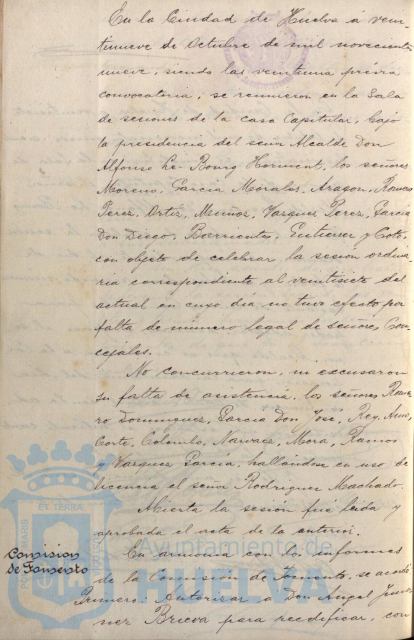 En la Ciudad de Huelva á vein-
tinueve de Octubre de mil novecientos
nueve, siendo las veintiuna prévia
convocatoria, se reunieron en la Sala
de sesiones de la casa Capitular, bajo
la presidencia del señor Alcalde Don
Alfonso Le-Bourg Horment, los señores
Moreno, Garcia Morales, Aragon, Romero
Perez, Ortiz, Muñoz, Vazquez Perez, Garcia
Don Diego, Barrientos, Gutierrez y Coto,
con objeto de celebrar la sesion ordina-
ria correspondiente al veintisiete del
actual en cuyo dia no tuvo efecto por
falta de número legal de señores Con-
cejales.
No concurrieron, ni excusaron
su falta de asistencia, los señores Rome-
ro Dominguez, Garcia Don José, Rey,
Corte, Colombo, Narvaez, Mora, Ramos
y Vazquez Garcia, hallándose en uso de
licencia el señor Rodriguez Machado.
Abierta la sesion fué leida y
aprobada el acta de la anterior.
Comision
de Fomento
En armonia con los informes
de la Comision de Fomento, se acordó
Primero: Autorizar a Don Angel Jime-
nez Brecva para reedificar, con
ET TERRA
Ayuntamiento de
HUELVA